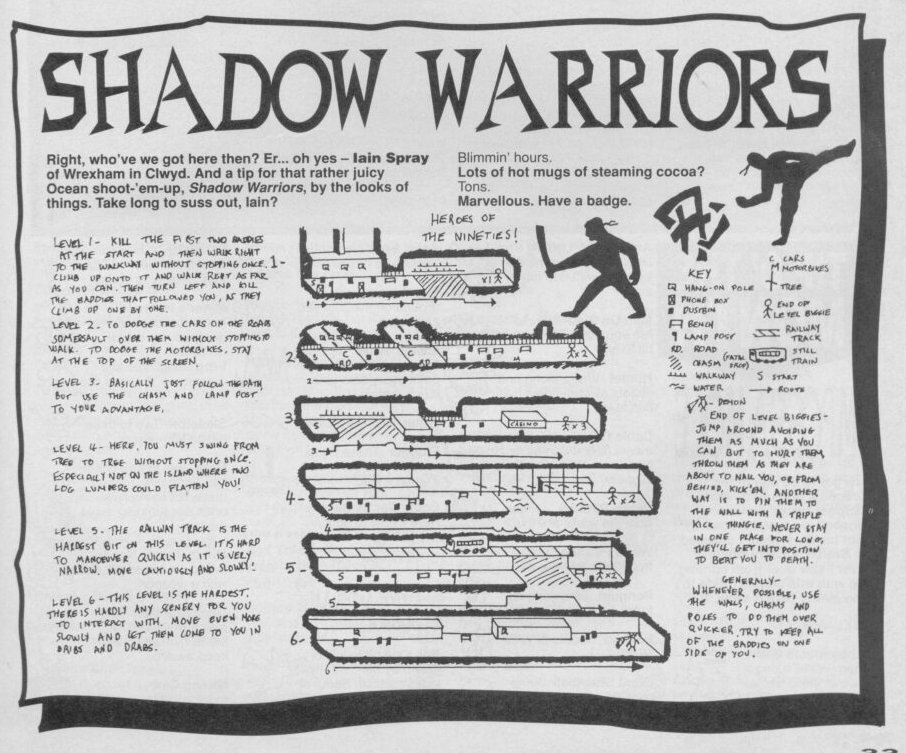 SHADOW WARRIORS
Right, who've we got here then? Er... oh yes – Iain Spray
of Wrexham in Clwyd. And a tip for that rather juicy
Ocean shoot-'em-up, Shadow Warriors, by the looks of
things. Take long to suss out, Iain?
Blimmin' hours.
Lots of hot mugs of steaming cocoa?
Tons.
Marvellous. Have a badge.
HEROES OF
THE NINETIES!
LEVEL 1- KILL THE FIRST TWO BADDIES
AT THE START AND THEN WALK RIGHT
TO THE WALKWAY WITHOUT STOPPING ONCE.
CLIMB UP ONTO IT AND WALK RIGHT AS FAR
AS YOU CAN. THEN TURN LEFT AND KILL
THE BADDIES THAT FOLLOWED YOU, AS THEY
CLIMB UP ONE BY ONE.
LEVEL 2. TO DODGE THE CARS ON THE ROADS
SOMERSAULT OVER THEM WITHOUT STOPPING TO
WALK. TO DODGE THE MOTORBIKES, STAY
AT THE TOP OF THE SCREEN.
LEVEL 3- BASICALLY JUST FOLLOW THE PATH
BUT USE THE CHASM AND LAMP POST
TO YOUR ADVANTAGE.
LEVEL 4- HERE, YOU MUST SWING FROM
TREE TO TREE WITHOUT STOPPING ONCE.
ESPECIALLY NOT ON THE ISLAND WHERE TWO
LOG LUMBERS COULD FLATTEN YOU!
LEVEL 5 - THE RAILWAY TRACK IS THE
HARDEST BIT ON THIS LEVEL. IT IS HARD
TO MANOEUVER QUICKLY AS IT IS VERY
NARROW. MOVE CAUTIOUSLY AND SLOWLY!
LEVEL 6 - THIS LEVEL IS THE HARDEST.
THERE IS HARDLY ANY SCENERY FOR YOU
TO INTERACT WITH. MOVE EVEN MORE
SLOWLY AND LET THEM COME TO YOU IN
DRIBS AND DRABS.
1-
S
x1
1
2-
S C C M x2
RD RD
2
3
S CASINO x3
3
4-
S x2
4
5-
S x2
5
6-
6
KEY
HANG-ON POLE
PHONE BOX
DUSTBIN
BENCH
LAMP POST
RD. ROAD
CHASM (FATAL DROP)
WALKWAY
WATER
C CARS
M MOTORBIKES
TREE
END OF
LEVEL BIGGIE
RAILWAY
TRACK
STILL
TRAIN
S START
ROUTE
- DEMON
END OF LEVEL BIGGIES -
JUMP AROUND AVOIDING
THEM AS MUCH AS YOU
CAN BUT TO HURT THEM,
THROW THEM AS THEY ARE
ABOUT TO NAIL YOU, OR FROM
BEHIND, KICK 'EM. ANOTHER
WAY IS TO PIN THEM TO
THE WALL WITH A TRIPLE
KICK THINGIE. NEVER STAY
IN ONE PLACE FOR LONG,
THEY'LL GET INTO POSITION
TO BEAT YOU TO DEATH.
GENERALLY-
WHENEVER POSSIBLE, USE
THE WALLS, CHASMS AND
POLES TO DO THEM OVER
QUICKER. TRY TO KEEP ALL
OF THE BADDIES ON ONE
SIDE OF YOU.